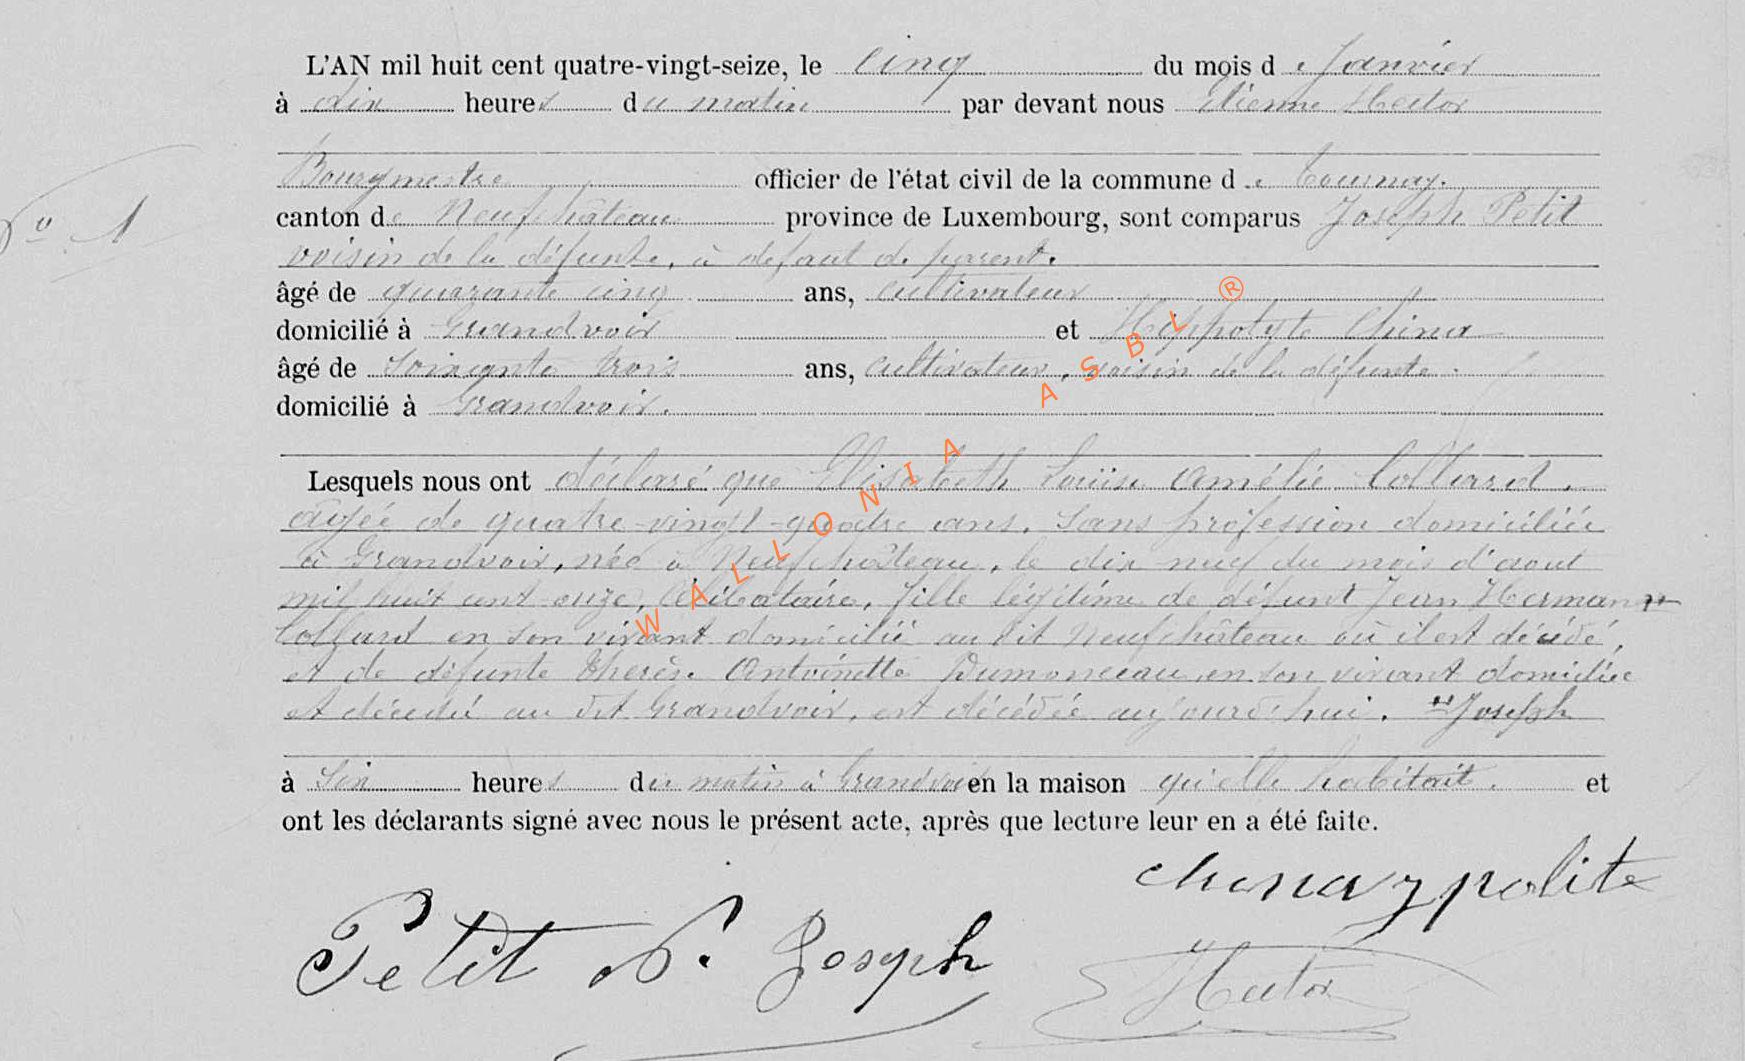 L'AN mil huit cent quatre-vingt-seize, le cinq du mois de Janvier
à dix heures du matin par devant nous Etienne Hector
Bourgmestre officier de l'état civil de la commune de Tournay.
N° 1
canton de Neufchâteau province de Luxembourg, sont comparus Joseph Petit
voisin de la défunte, à défaut de parent.
âgé de quarante cinq ans, cultivateur
domicilié à Grandvoir et Hippolyte China
âgé de soixante trois ans, cultivateur, voisin de la défunte.
domicilié à Grandvoir.
Lesquels nous ont déclaré que Elisabeth Louise Amélie Collard,
agée de quatre-vingt-quatre ans, sans profession domiciliée
à Grandvoir, née à Neufchâteau, le dix neuf du mois d'aout
mil huit cent onze, célibataire, fille légitime de défunt Jean Hermann
Collard en son vivant domicilié au dit Neufchâteau où il est décédé,
et de défunte Therèse Antoinette Dumonceau en son vivant domiciliée
et décédée au dit Grandvoir, est décédée aujourd'hui. Joseph
à six heures du matin à Grandvoir en la maison qu'elle habitait. et
ont les déclarants signé avec nous le présent acte, après que lecture leur en a été faite.
china ypolite
Petit J. Joseph
Hector
WALLONIA ASBL ®